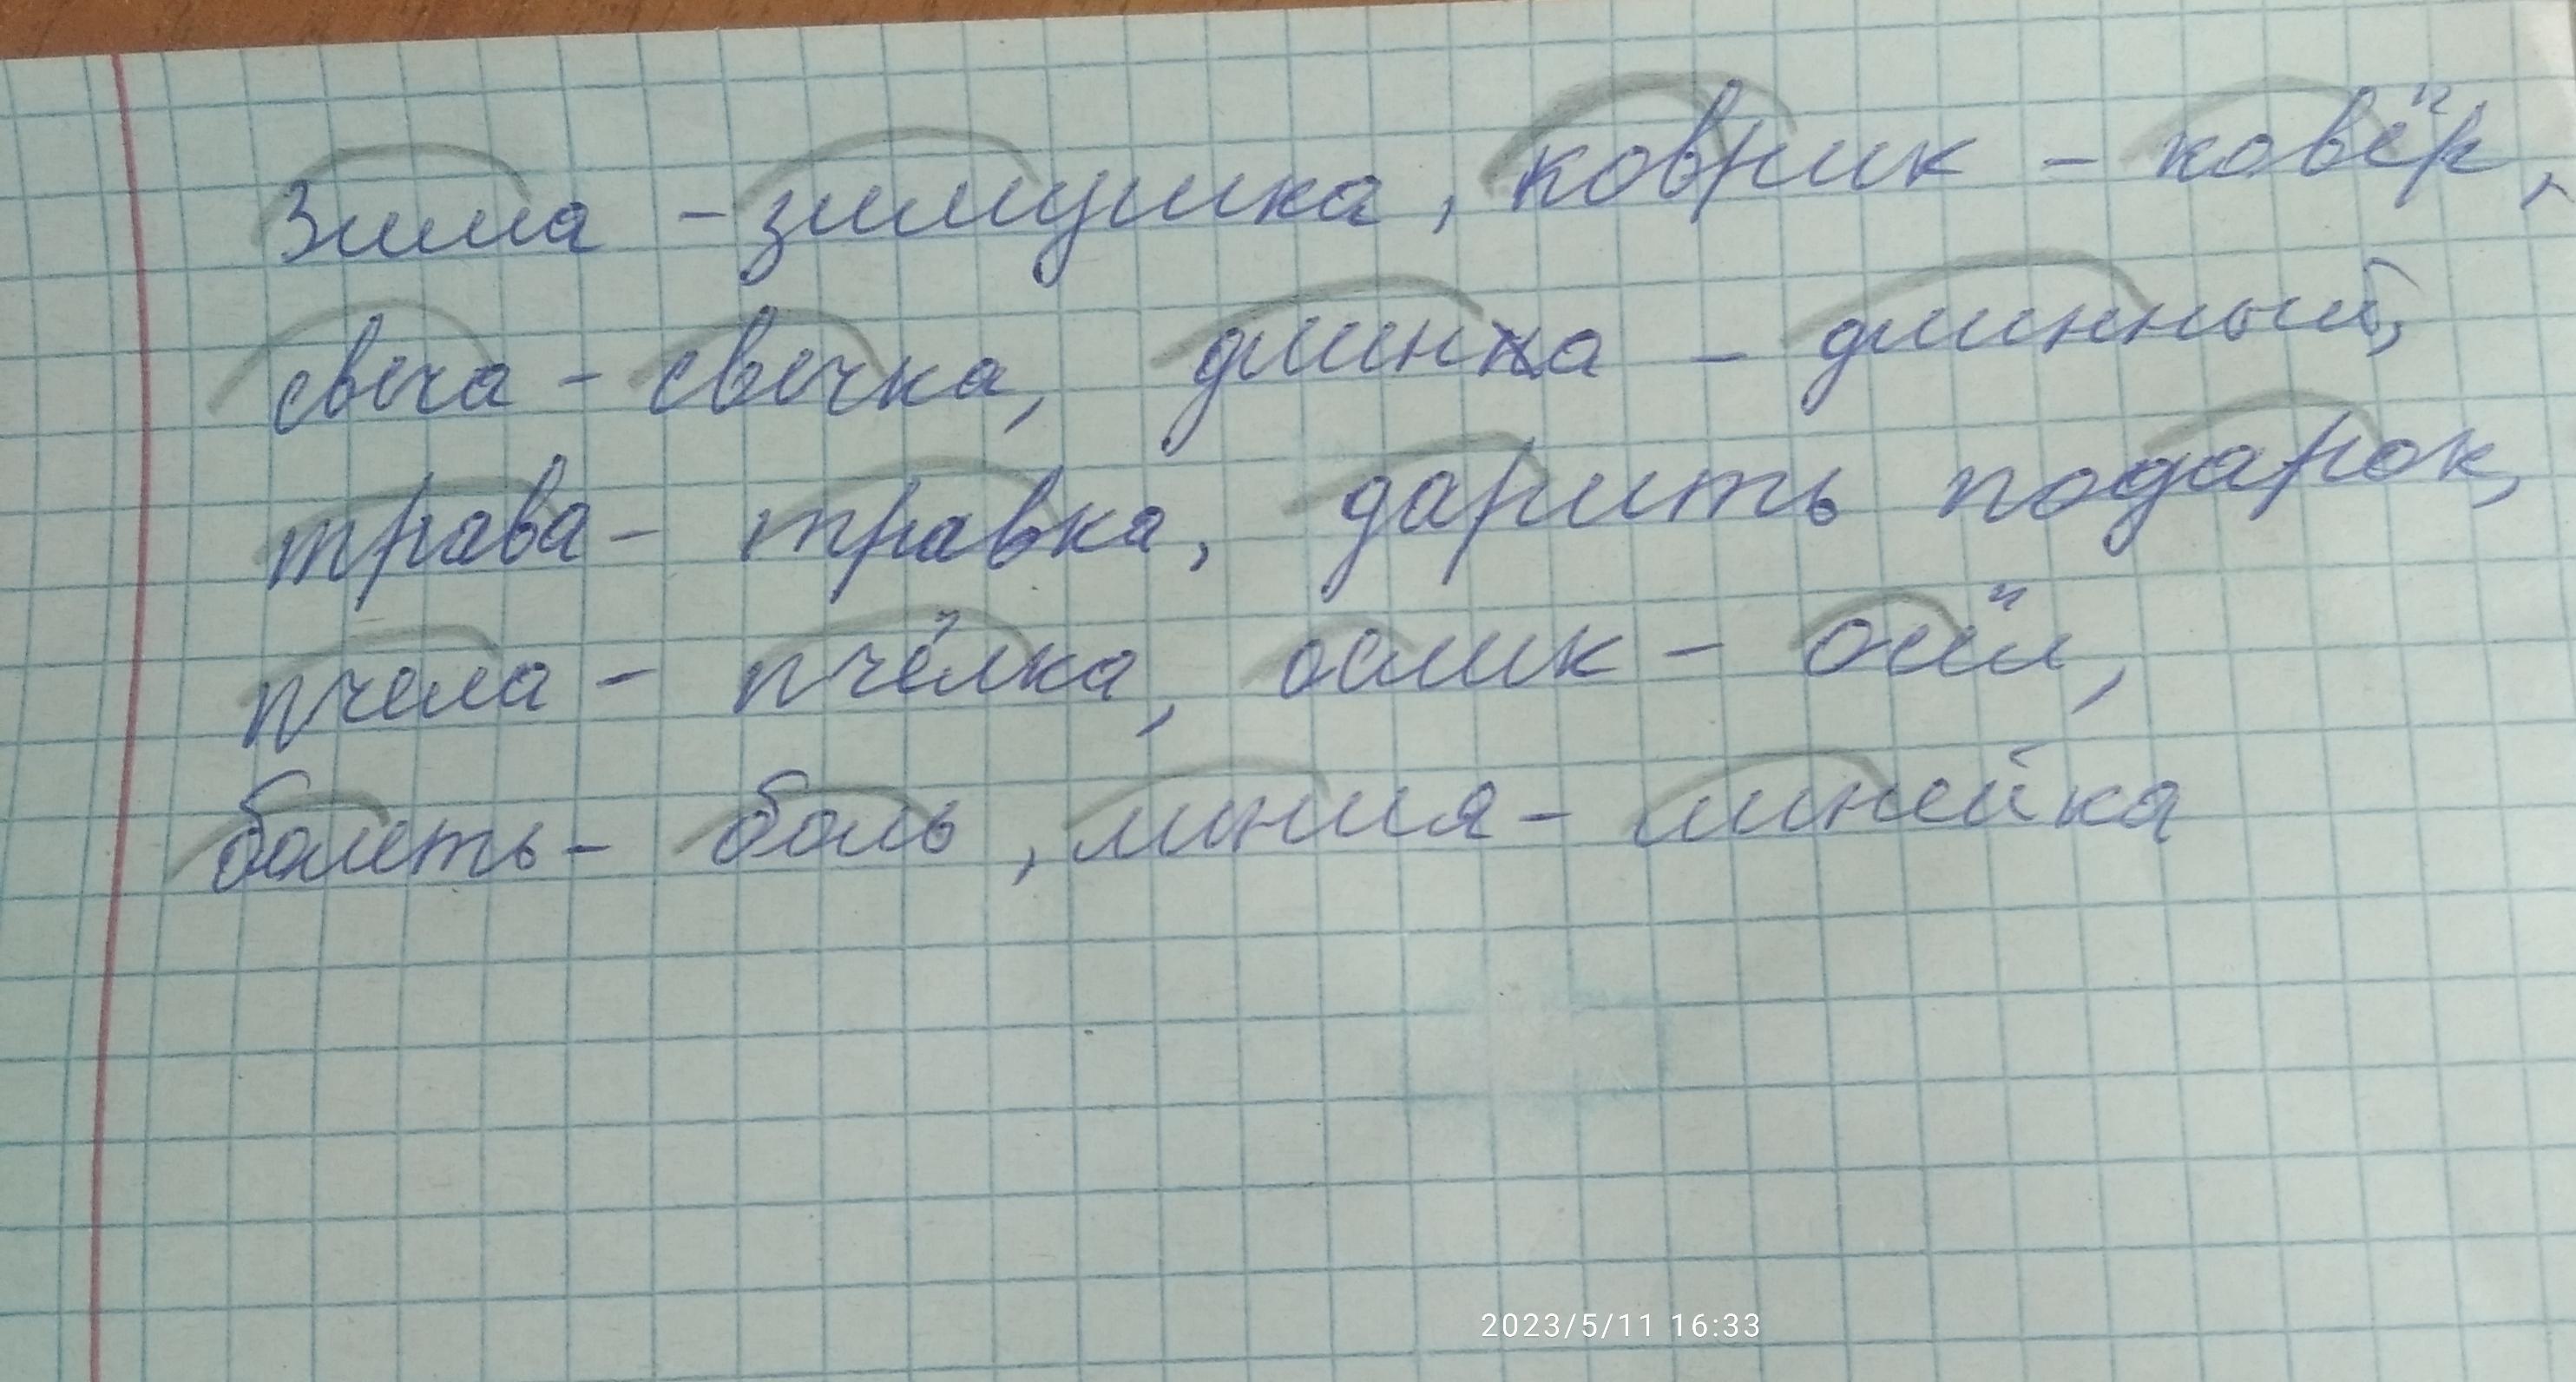 Зима - зимушка, коврик - ковёр,
свеча - свечка, длина - длинный,
трава - травка, дарить подарок,
пчела - пчёлка, ослик - осёл,
болеть - боль, линия - линейка
2023/5/11 16:33